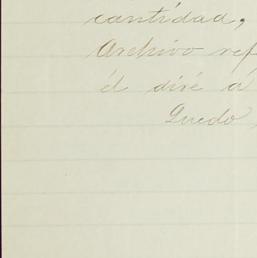 cantidad,
Archivo ref
él diré á
Quedo